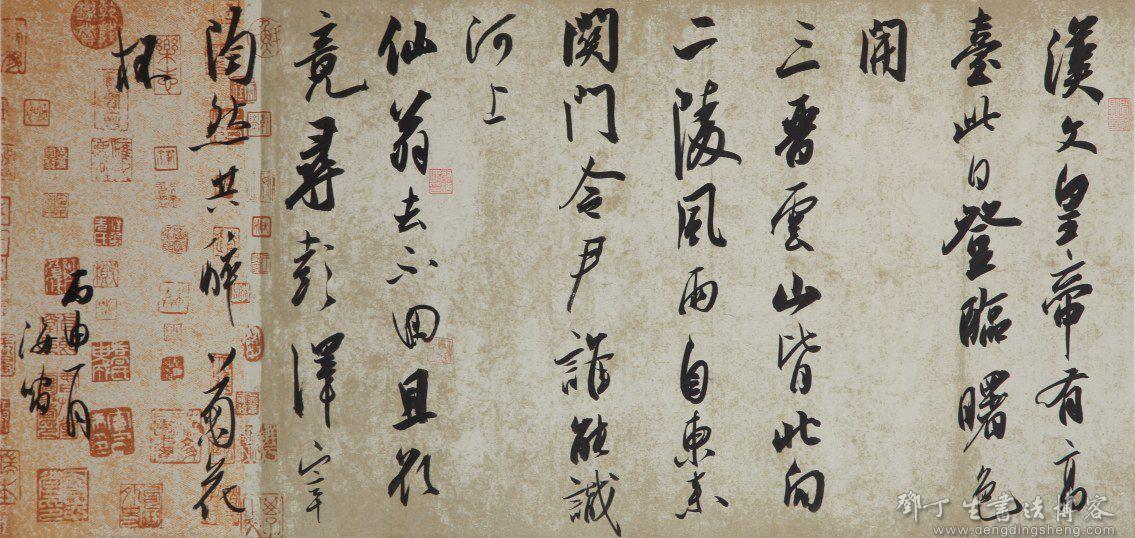 漢文皇帝有高
臺此日登臨曙色
開
三晉雲山皆北向
二陵風雨自東来
関門令尹誰能識
河上
仙翁去不回且欲
竟尋彭澤宰
陶然共醉菊花
杯
丙申一月
海
鄧丁生書法博客
www.dengdingsheng.com